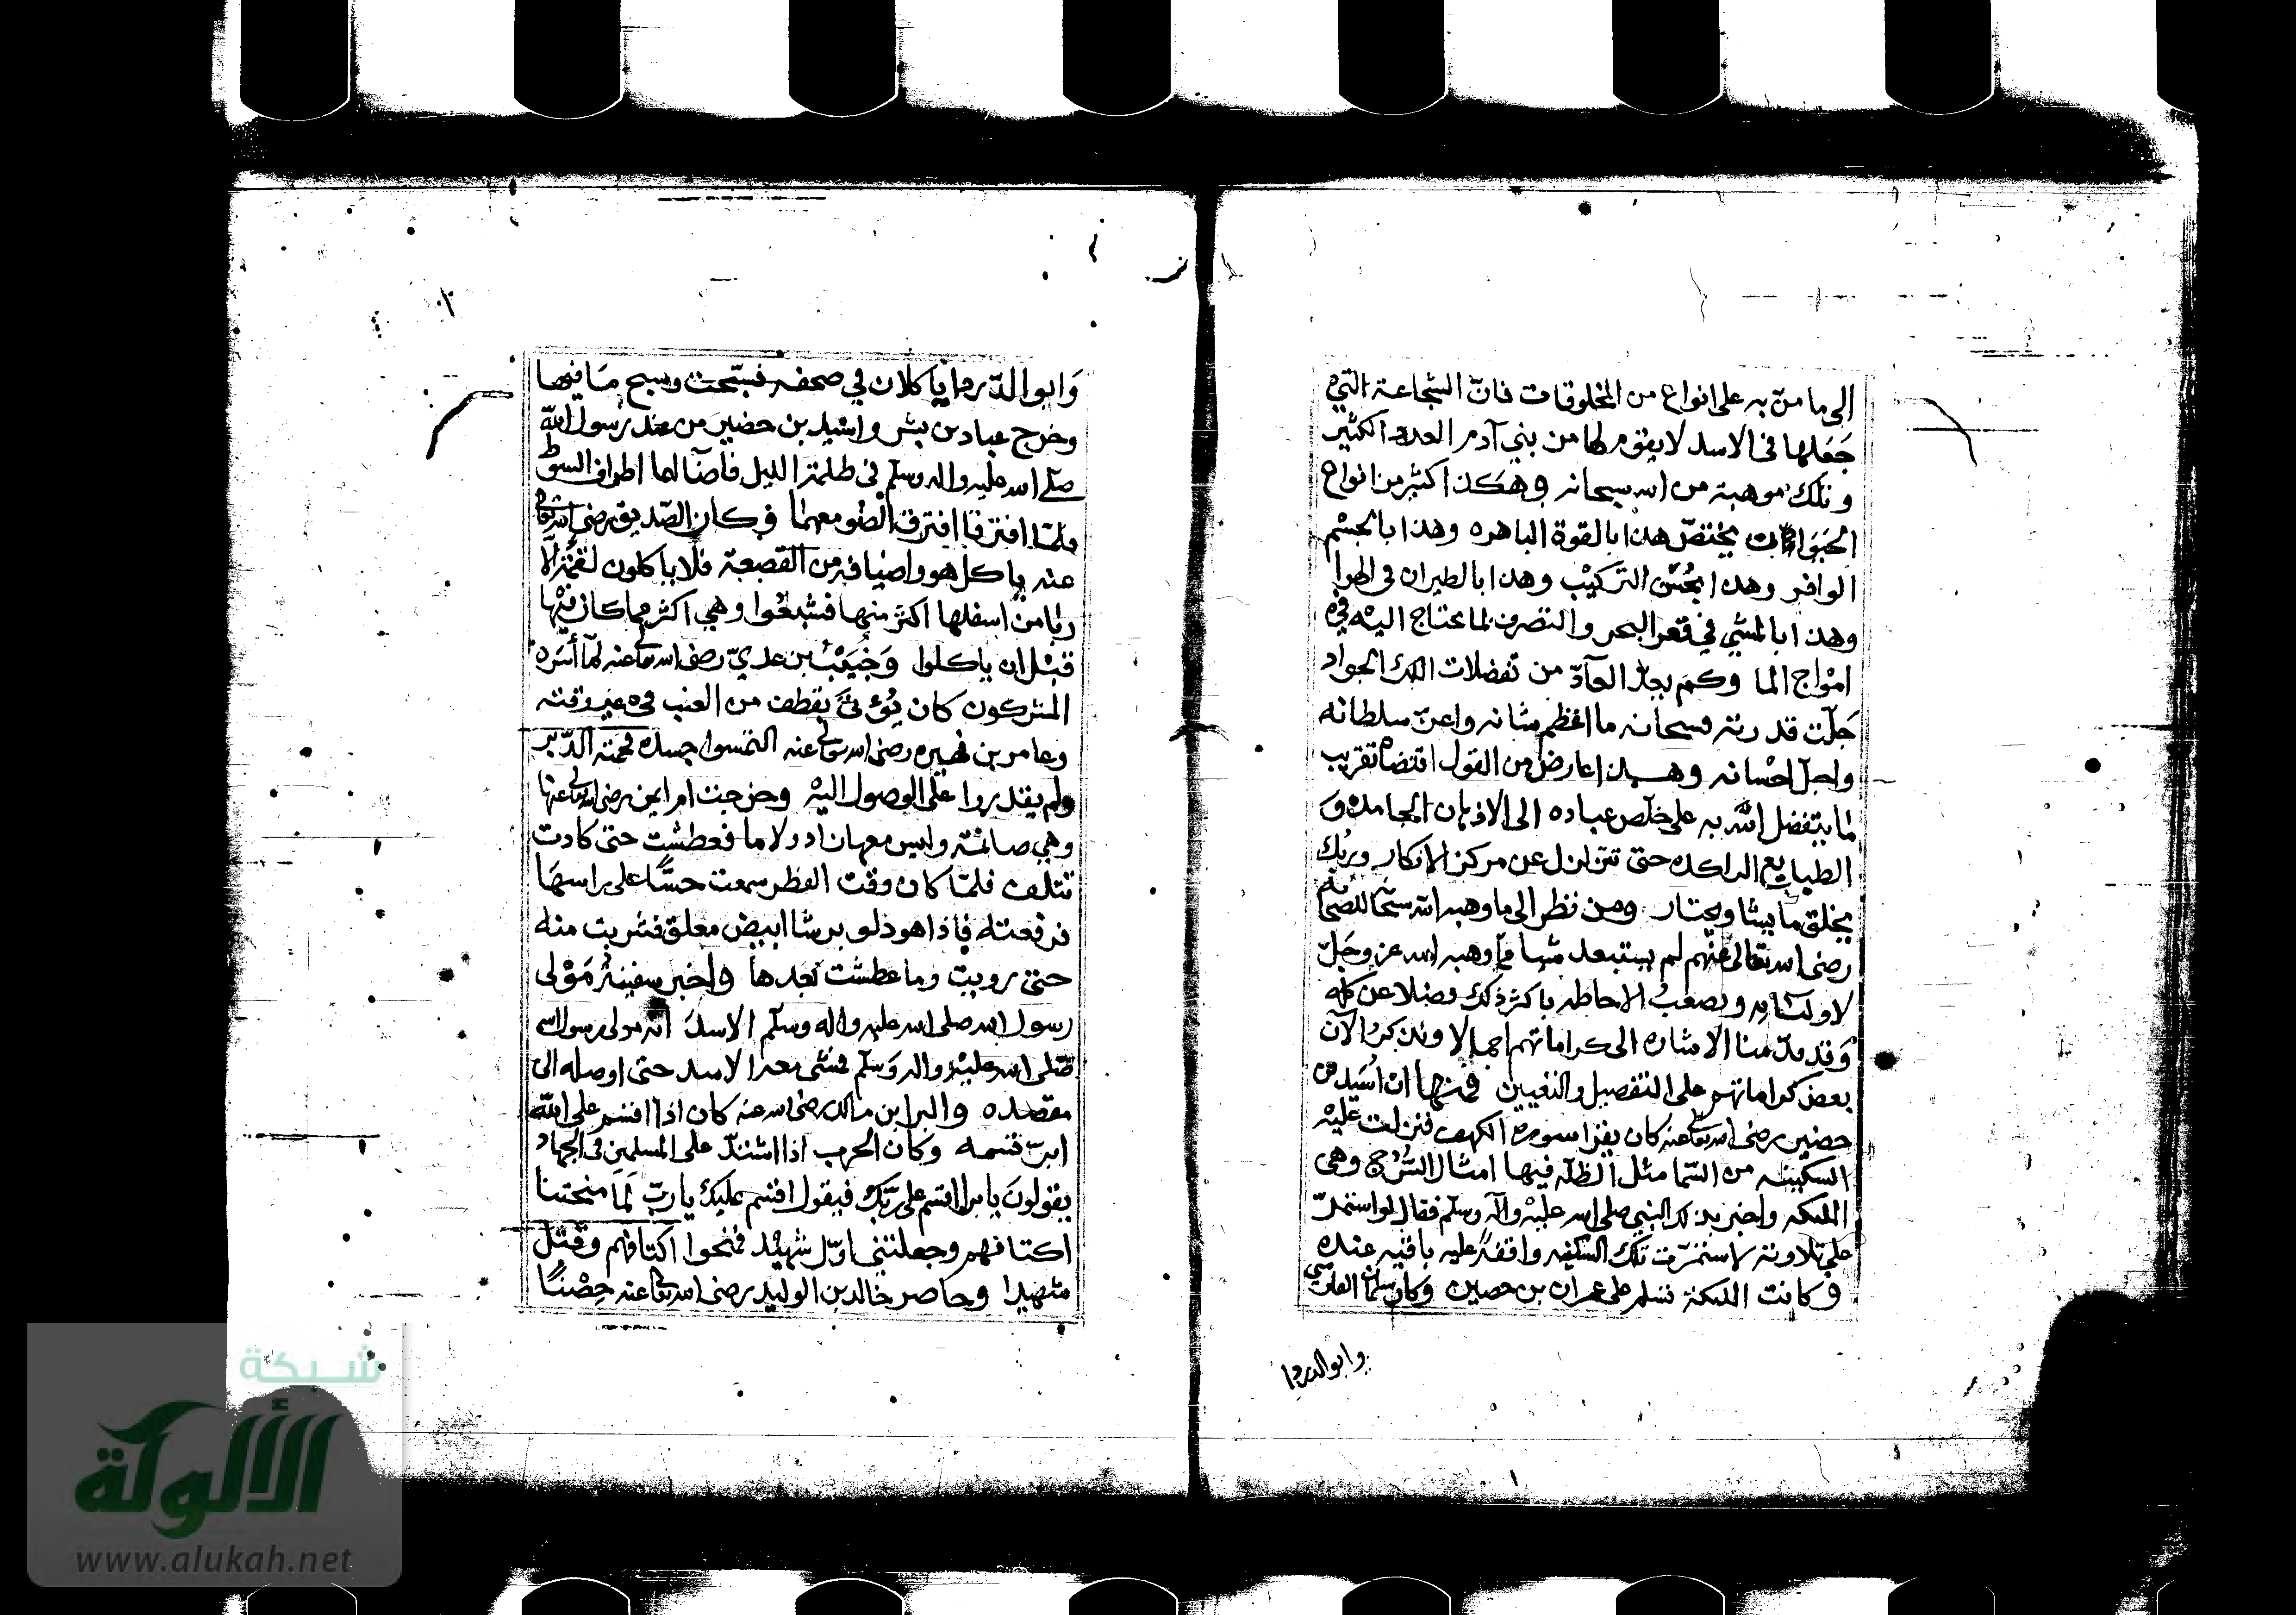 الى ما منّ به على انواع من المخلوقات فانّ الشجاعة التي
جَعَلها فى الاسد لا يقوم لها من بني آدم العدد الكثير
وتلك موهبة من الله سبحانه وهكذا اكثر من انواع
الحيوانات يختصّ هذا بالقوة الباهره وهذا بالجسْم
الوافر وهذا بحُسْن التركيْب وهذا بالطيران في الهوا
وهذا بالمشي في قعر البحر والتصرف لما يحتاج اليْه في
امْواج الما وكم يجد العآدّ من تفضلات الملك الجواد
جَلّت قدرته وسبحانه ما اعظم شانه واعزّ سلطانه
واجلّ احْسانه وهذا عارض من القول اقتضاه تقريب
لما يتفضل الله به على خلّص عباده الى الاذهان الجامده و
الطبايع الراكده حتى تتزلزل عن مركز الانكار وربُك
يخلق ما يشا ويختار ومن نظر الى ما وهبه الله سبحانه للصحابه
رضى الله تعالى عنهم لم يستبعد شيا مما وهبه الله عز وجَلّ
لاوليآئه ويصعبُ الاحاطه باكثر ذلك فضلا عن كله
وَقد قدّمنا الاشاره الى كراماتهم اجمالا ونذكر الآن
بعض كراماتهم على التفصيل والتعيين فمنها ان اُسَيْد بن
حضير رضى الله تعالى عنه كان يقرا سورة الكهف فنزلت عليْه
السكينه من السّما مثل الظلّه فيها امثال السُّرُج وهى
الملئكه واخبر بذلك النبي صلى الله عليْه وآله وسلّم فقال لو استمرّ
على تلاوته لاستمرّت تلك السّكينه واقفة عليه باقيه عنده
وكانت الملئكة تسلم على عمران بن حصين وكان سلمان الفارسي
وابوالدردا
وَابوالدّردا ياكلان في صحفه فسَبّحت وسبح مَا فيها
وخرج عباد بن بشر واسَيْد بن حضير من عند رسول الله
صلى الله عليه واله وسلّم فى ظلمة الليل فاضآ لهما اطراف السوط
فلمّا افترقا افترق الضو معهما وكان الصّديق رضى الله تعالى
عنه ياكل هو واضيافه من القصعة فلا ياكلون لقمة الّا
ربا من اسفلها اكثر منها فشبعُوا وهي اكثر مما كان فيْها
قبْل ان ياكلوا وَخُبَيْبُ بن عديّ رضى الله تعالى عنه لمّا أسَره
المشركون كان يُؤتىَ بقطف من العنب في غير وقته
وعامر بن فهيره رضى الله تعالى عنه التمسوا جسده فحمته الدّبر
ولم يقدروا على الوصول اليْه وخرجت ام ايمن رضى الله تعالى عنها
وهي صائمة وليس معها زاد ولا ما فعطشت حتى كادت
تتلف فلمّا كان وقت الفطر سمعت حسًّا على راسهَا
فرفعته فاذا هو دلو برشا ابيض معلق فشربت منه
حتى رويت وما عطشت بَعدها واخبر سفينةُ مَوْلى
رسول الله صلى الله عليه واله وسلّم الاسدَ انه مولى رسول الله
صَلى الله عليْه واله وَسلّم فمشى معه الاسد حتى اوصله الى
مقصده والبرا بن مالك رضى الله عنه كان اذا اقسم على الله
ابرّ قسمه وكان الحرب اذا اشتدّ على المسلمين فى الجهاد
يقولونَ يا برا اقسم على ربّك فيقول اقسم عليك يا ربّ لمَا منحتنا
اكتافهم وجعلتني اوّل شهيْد فمنحوا اكتافهم وقتل
شهيدا وحاصر خالد بن الوليد رضى الله تعالى عنه حِصْنًا
شبكة
الألوكة
www.alukah.net